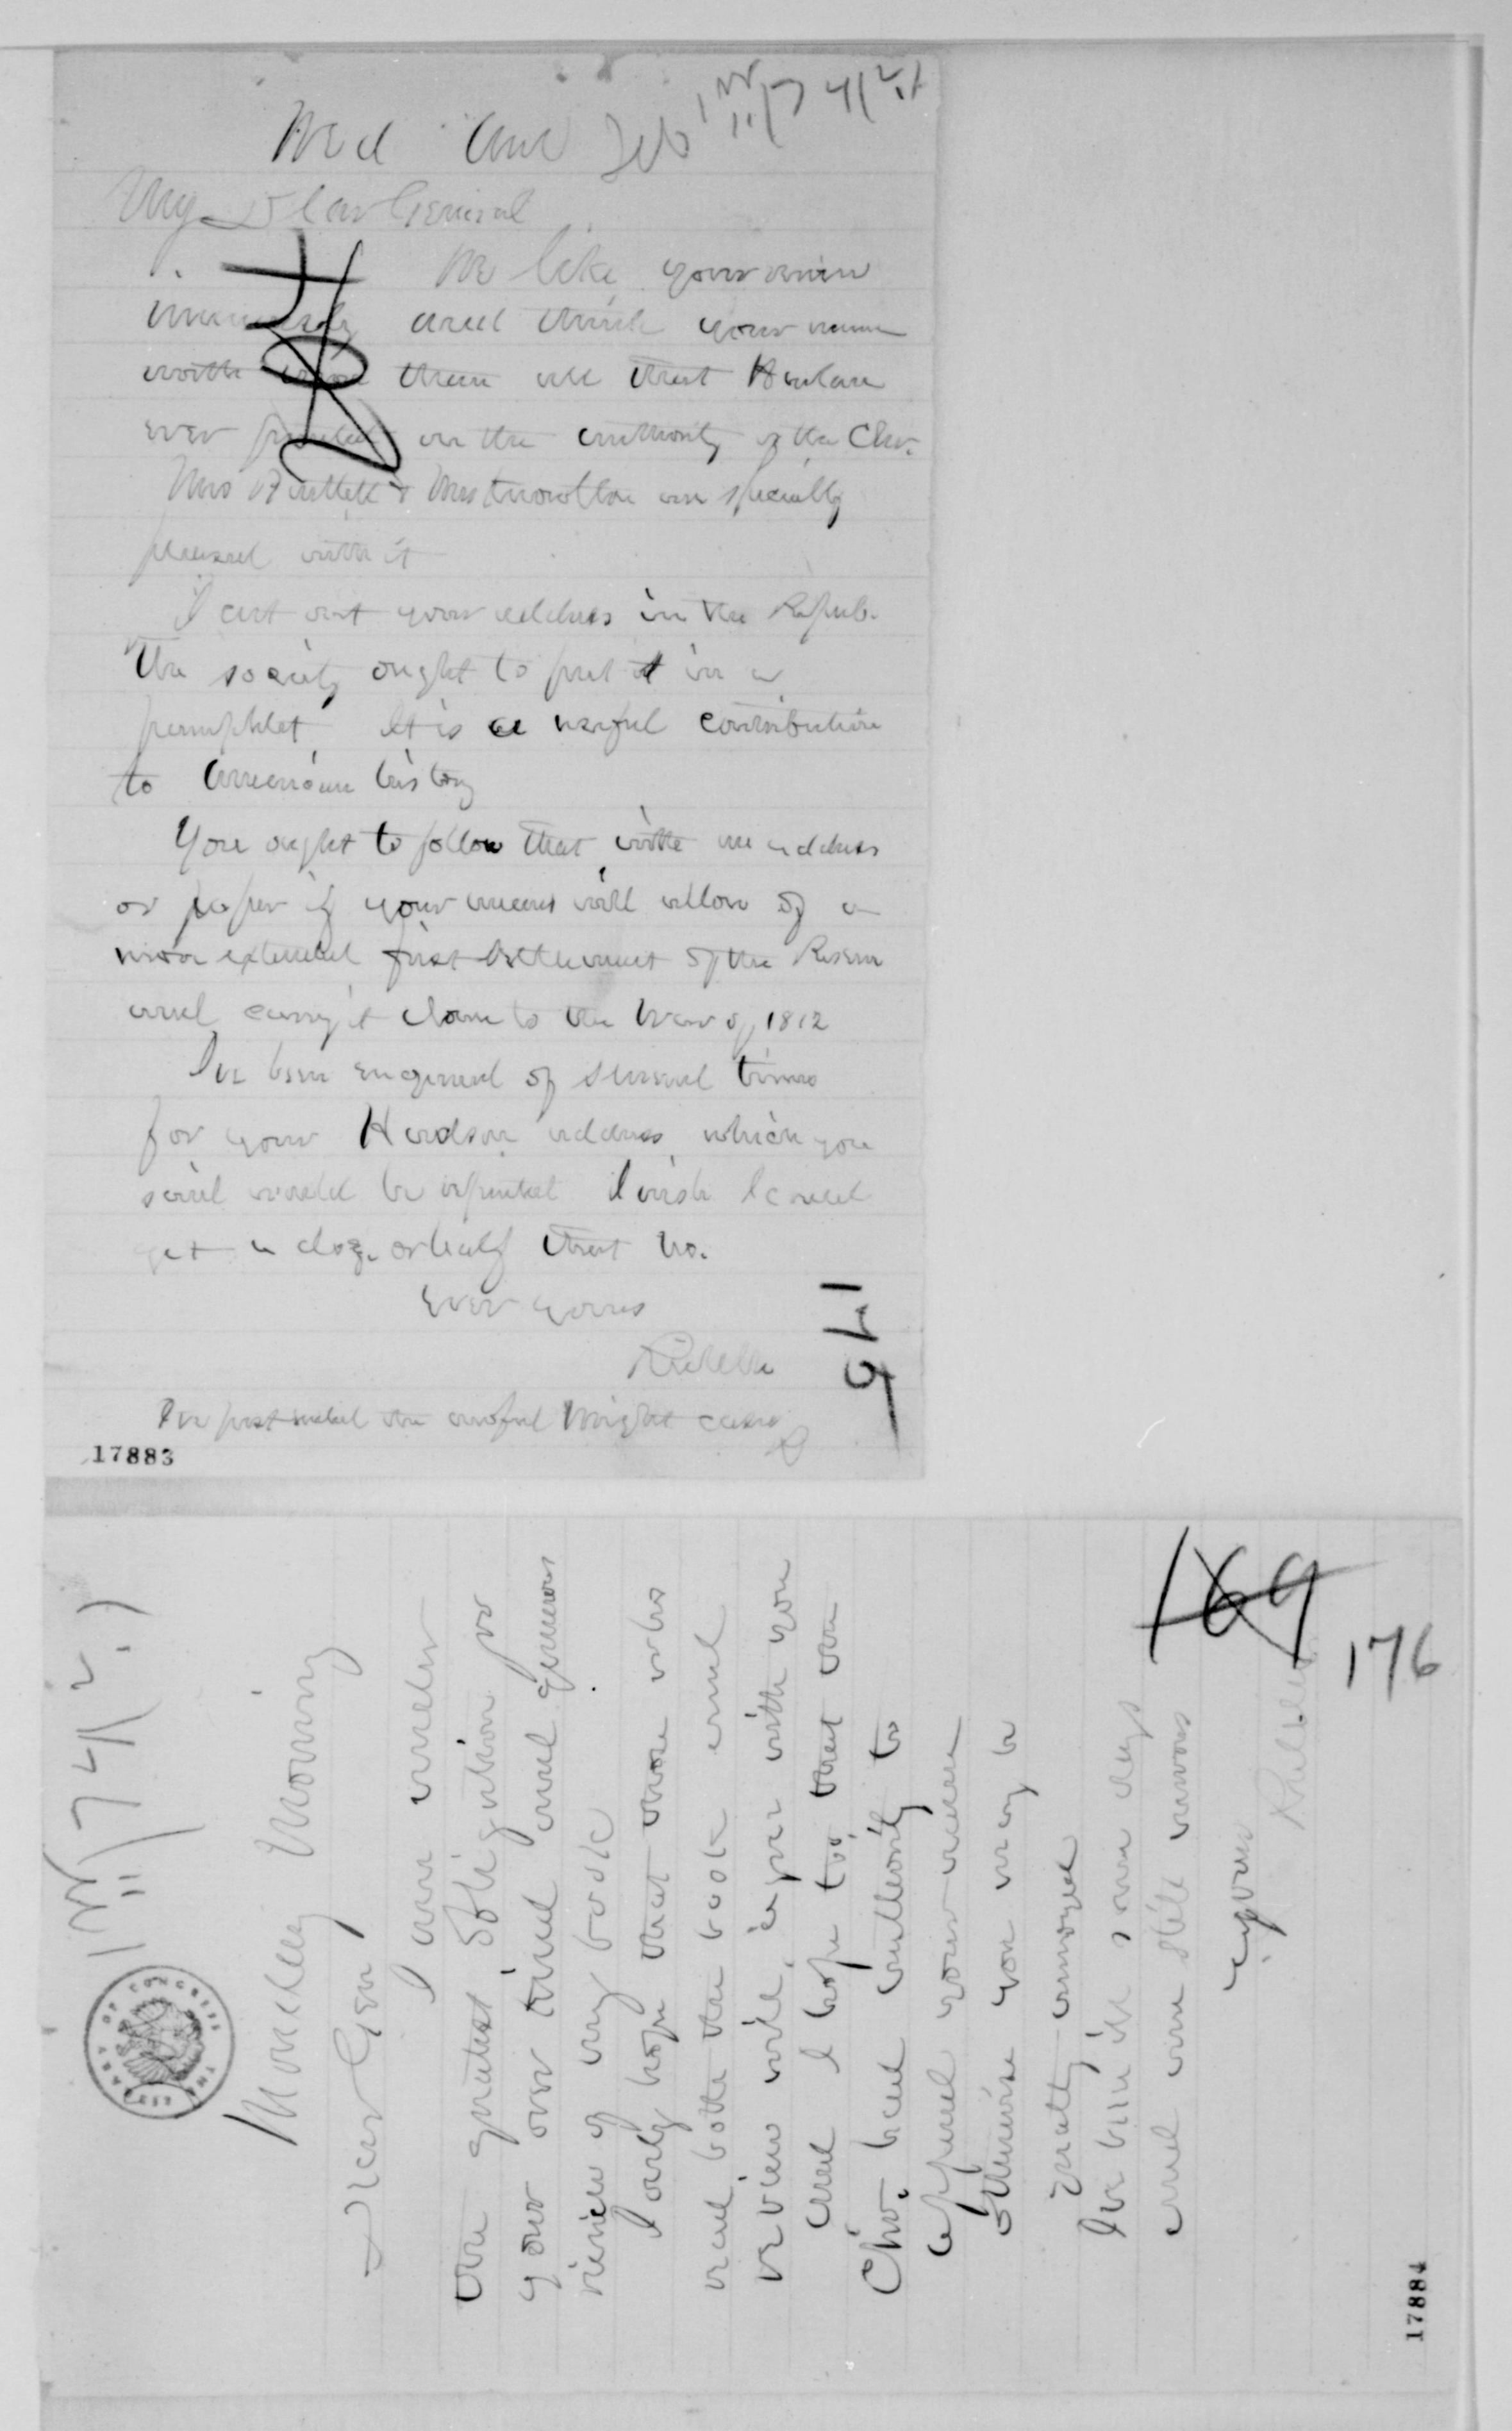 Wed Eve Feb
My Dear General
We like your review
immensely and think your name
worth them all that
ever printed on the authority of the Chr.
Mrs & Miss are specially
pleased with it
I cut out your address in the Repub.
The society ought to put it in a
pamphlet It is a useful contribution
to American history
You ought to follow that with an address
or paper if your means will allow of a
more extended first settlement of the Reserve
and carry it down to the War of 1812
Ive been enquired of several times
for your Hudson address which you
said would be reprinted I wish I could
get a doz. or half that no.
Ever yours
Riddle
Ive just read the awful Wright case
R
175
17883
Monday Morning
Dear Gen
I am under
the greatest obligation for
your over kind and generous
review of my book
I only hope that those who
read both the book and
review will agree with you
and I hope too that the
Chr. had authority to
append your name
otherwise you may be
greatly annoyed
Ive been ill some days
and am still nervous
yours
Riddle
169
176
17884
LIBRARY OF CONGRESS